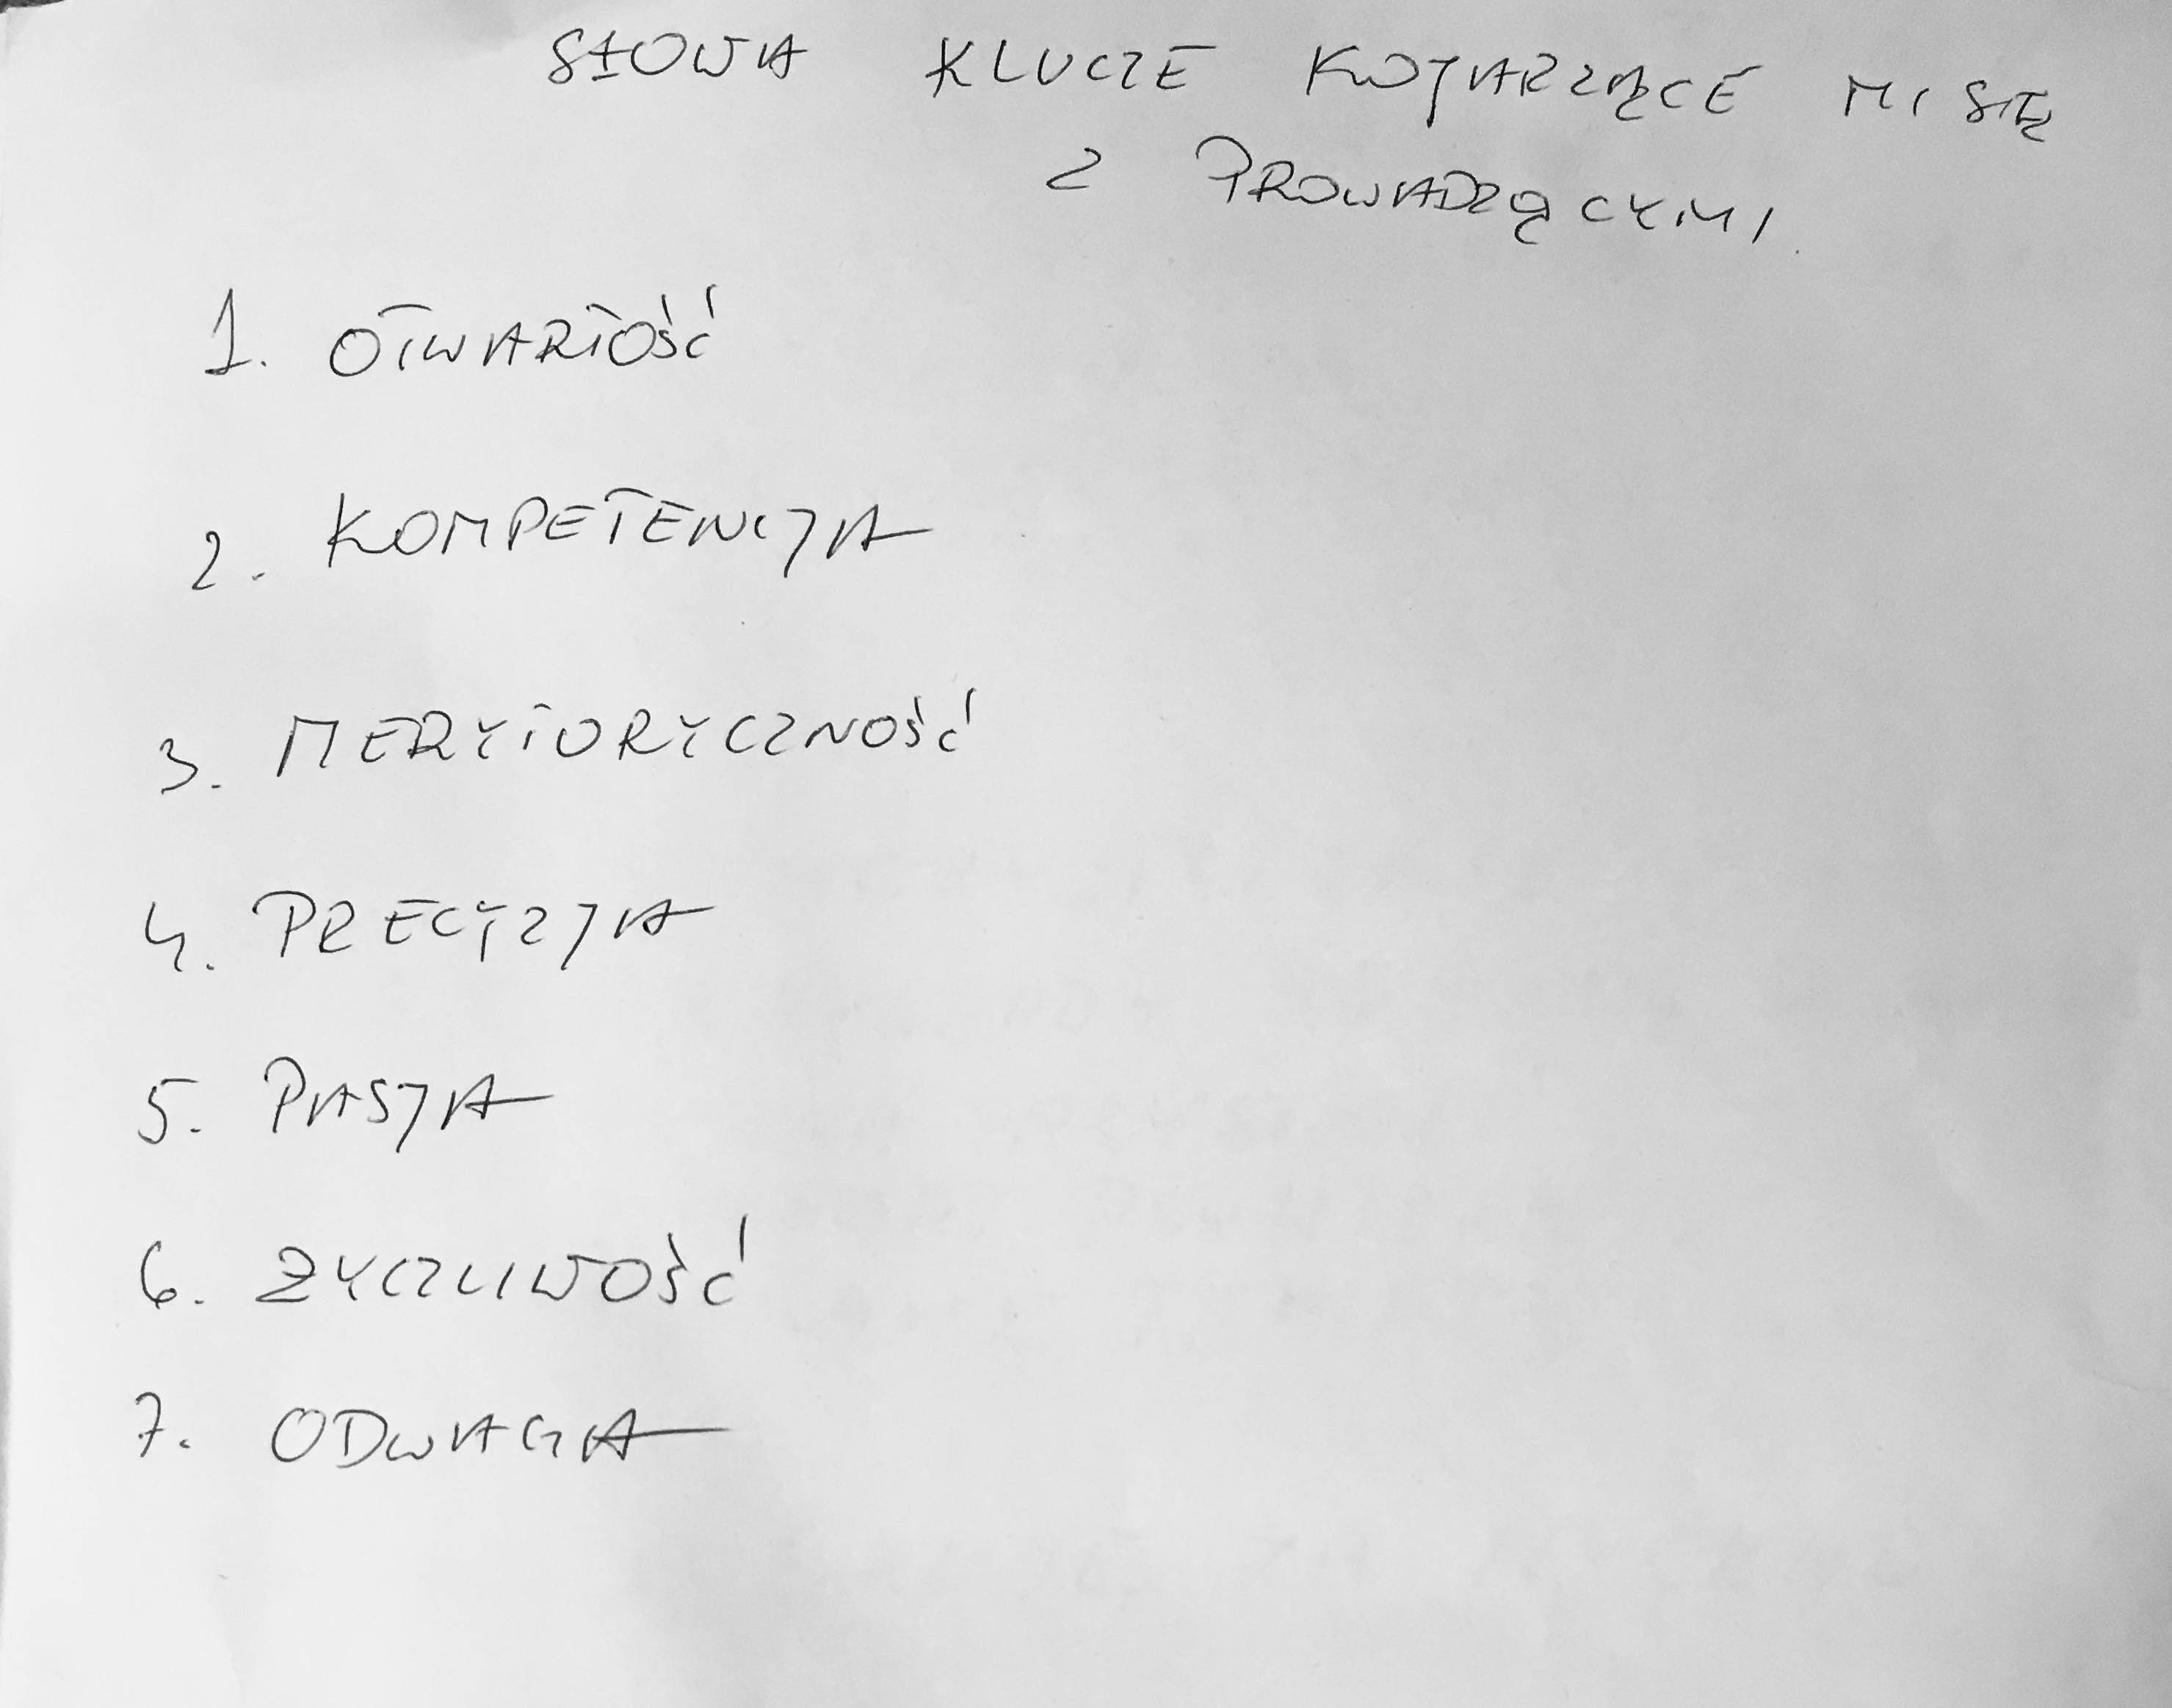 SŁOWA KLUCZE KOJARZĄCE MI SIĘ
Z PROWADZĄCYMI.
1. OTWARTOŚĆ
2. KOMPETENCJA
3. MERYTORYCZNOŚĆ
4. PRECYZJA
5. PASJA
6. ŻYCZLIWOŚĆ
7. ODWAGA